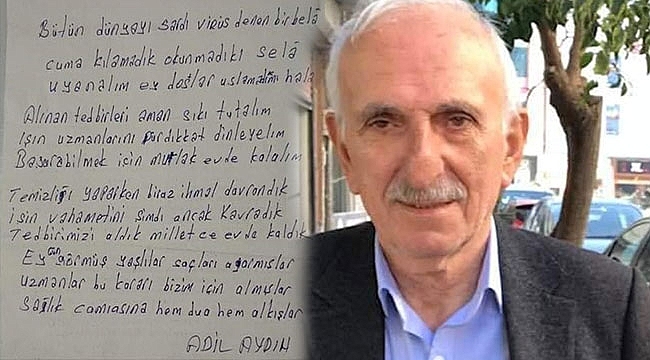 Bütün dünyayı sardı virüs denen bir belâ
cuma kılamadık okunmadıki selâ
uyanalım ey dostlar uslamadını hala
Alınan tedbirleri aman sıkı tutalım
işin uzmanlarını pürdikkat dinleyelim
Başarabilmek için mutlak evde kalalım
Temizliği yaparken biraz ihmal davrandık
işin vahametini şimdi ancak kavradık
Tedbirimizi aldık millet ce evde kaldık
Ey gün görmüş yaşlılar saçları ağarmışlar
uzmanlar bu kararı bizim için almışlar
sağlık camiasına hem dua hem alkışlar
ADİL AYDIN